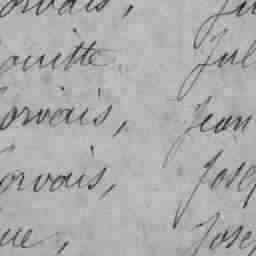 orvais, Ju
ouitte Jul
orvais, Jean
orvais, Jose
ue, Jose